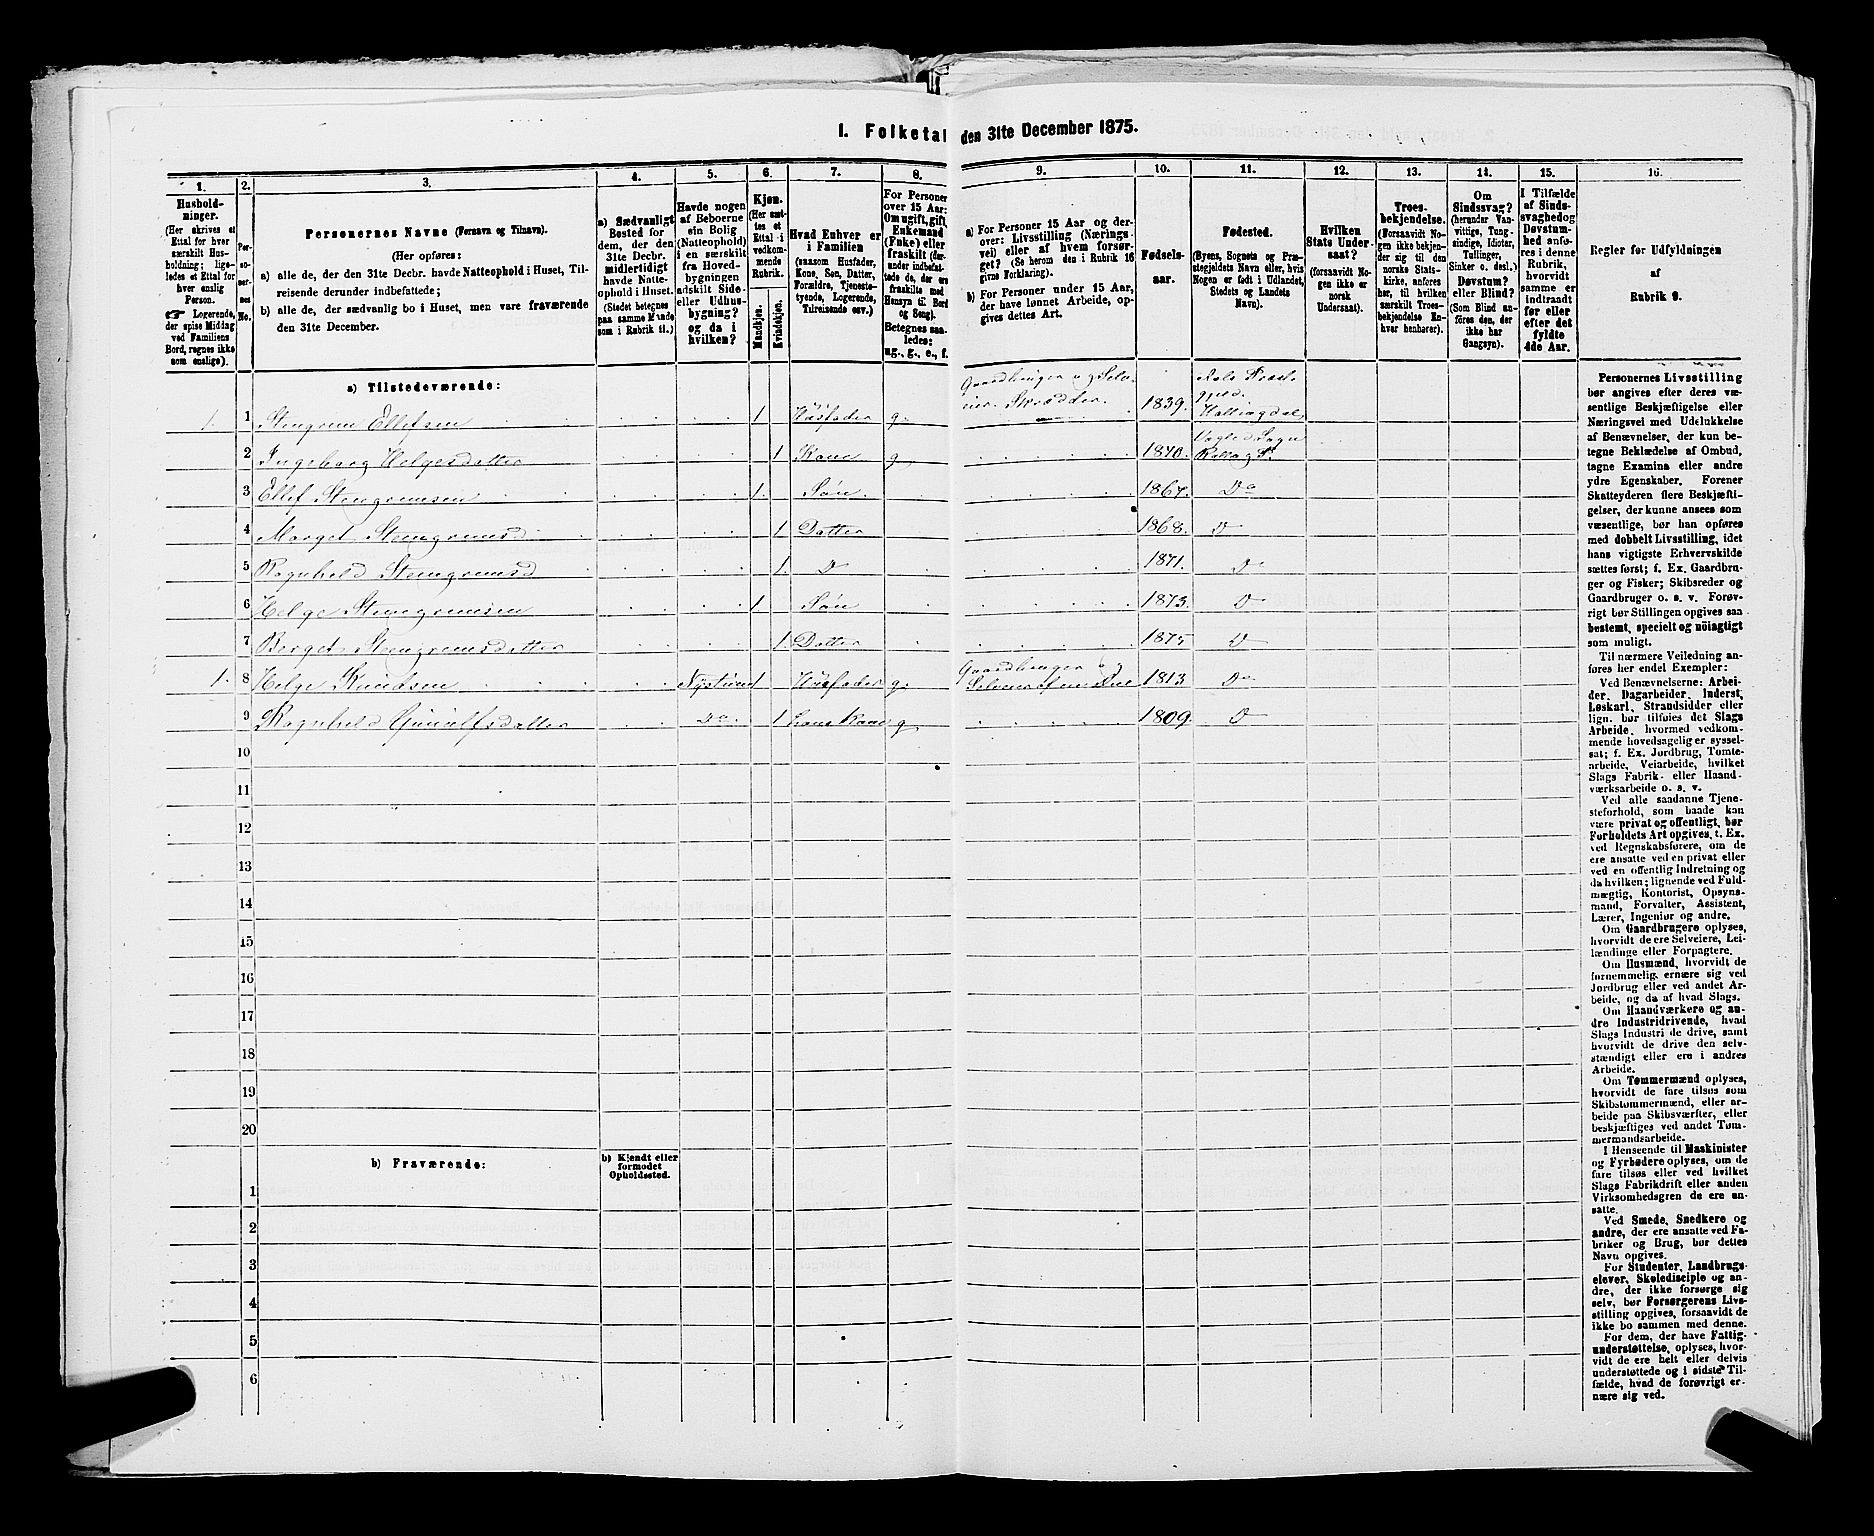 1. Folketal den 31te December 1875.
1.
Hushold-
ninger.
(Her skrives et
Ettal for hver
særskilt Hus-
holdning; lige-
ledes et Ettal for
hver enslig
Person.
☞ Logerende,
der spise Middag
ved Familiens
Bord, regnes ikke
som enslige).
2.
Per-
so-
ner-
nes
No.
3.
Personernes Navne (Fornavn og Tilnavn).
(Her opføres:
a) alle de, der den 31te Decbr. havde Natteophold i Huset, Til-
reisende derunder indbefattede;
b) alle de, der sædvanlig bo i Huset, men vare fraværende
den 31te December.
4.
a) Sædvanligt
Bosted for
dem, der den
31te Decbr.
midlertidigt
havde Natte-
ophold i Huset.
(Stedet betegnes
paa samme Maade
som i Rubrik 11.)
5.
Havde nogen
af Beboerne
sin Bolig
(Natteophold)
i en særskilt
fra Hoved-
bygningen
adskilt Side-
eller Udhus-
bygning?
og da i
hvilken?
6.
Kjøn.
(Her sæt-
tes et
Ettal i
vedkom-
mende
Rubrik.
Mandkjøn.
Kvindekjøn.
7.
Hvad Enhver er
i Familien
(saasom Husfader,
Kone, Søn, Datter,
Forældre, Tjeneste-
tyende, Logerende,
Tilreisende osv.)
8.
For Personer
over 15 Aar:
Om ugift, gift,
Enkemand
(Enke) eller
fraskilt (der-
under indbefat-
tede de, der ere
fraskilte med
Hensyn til Bord
og Seng).
Betegnes saa-
ledes:
ug., g., e., f.
9.
a) For Personer 15 Aar og der-
over: Livsstilling (Nærings-
vei) eller af hvem forsør-
get? (Se herom den i Rubrik 16
givne Forklaring).
b) For Personer under 15 Aar,
der have lønnet Arbeide, op-
gives dettes Art.
10.
Fødsels-
aar.
11.
Fødested.
(Byens, Sognets og Præ-
stegjeldets Navn eller, hvis
Nogen er født i Udlandet,
Stedets og Landets
Navn).
12.
Hvilken
Stats Under-
saat?
(forsaavidt No-
gen ikke er
norsk
Undersaat).
13.
Troes-
bekjendelse.
(Forsaavidt Nogen
ikke bekjen-
der sig til den
norske Stats-
kirke, anføres
her, til hvilken
særskilt Troes-
bekjendelse En-
hver henhører).
14.
Om
Sindssvag?
(herunder Van-
vittige, Tung-
sindige, Idioter,
Tullinger,
Sinker o. desl.)
Døvstum?
eller Blind?
(Som Blind an-
føres den, der
ikke har
Gangsyn).
15.
I Tilfælde
af Sinds-
svaghed og
Døvstum-
hed anfø-
res i denne
Rubrik,
hvorvidt
samme er
indtraadt
før eller
efter det
fyldte
4de Aar.
16.
Regler før Udfyldningen
af
Rubrik 9.
a) Tilstedeværende:
1. 1 Stengrim Ellefsen 1 Husfader g. Gaardbruger og Selv-
eier. Skrædder. 1839. Aals Præst-
gjeld.
Hallingdal
2 Ingeborg Helgesdatter 1 Kone g 1840. Sogn
Rollag
3 Ellef Stengrimsen 1. Søn. 1867. Do
4 Marget Stengrimsd 1 Datter 1868. D
5 Ragnhild Stengrimsd 1. D 1871. D
6 Helge Stengrimsen 1. Søn 1873. D
7 Berget Stengrimsdatter 1. Datter 1875 D
1. 8 Helge Knudsen 1 Husfader g. Gaardbruger og
1813 Do
9 Ragnhild Do. 1 hans Kone g 1809. D
10
11
12
13
14
15
16
17
18
19
20
b) Fraværende:
b) Kjendt eller
formodet
Opholdssted.
1
2
3
4
5
6
Personernes Livsstilling
bør angives efter deres væ-
sentlige Beskjæftigelse eller
Næringsvei med Udelukkelse
af Benævnelser, der kun be-
tegne Beklædelse af Ombud,
tagne Examina eller andre
ydre Egenskaber. Forener
Skatteyderen flere Beskjæfti-
gelser, der kunne ansees som
væsentlige, bør han opføres
med dobbelt Livsstilling, idet
hans vigtigste Erhvervskilde
sættes først; f. Ex. Gaardbru-
ger og Fisker; Skibsreder og
Gaardbruger o. s. v. Forøv-
rigt bør Stillingen opgives saa
bestemt, specielt og nøiagtigt
som muligt.
Til nærmere Veiledning an-
føres her endel Exempler:
Ved Benævnelserne: Arbei-
der, Dagarbeider, Inderst,
Løskarl, Strandsidder eller
lign. bør tilføies det Slags
Arbeide, hvormed vedkom-
mende hovedsagelig er syssel-
sat; f. Ex. Jordbrug, Tomte-
arbeide, Veiarbeide, hvilket
Slags Fabrik- eller Haand-
værksarbeide o. s. v.
Ved alle saadanne Tjene-
steforhold, som baade kan
være privat og offentligt, bør
Forholdets Art opgives, t. Ex.
ved Regnskabsførere, om de
ere ansatte ved en privat eller
ved en offentlig Indretning og
da hvilken; lignende ved Fuld-
mægtig, Kontorist, Opsyns-
mand, Forvalter, Assistent,
Lærer, Ingeniør og andre.
Om Gaardbrugere oplyses,
hvorvidt de ere Selveiere, Lei-
lændinge eller Forpagtere.
Om Husmænd, hvorvidt de
fornemmelig ernære sig ved
Jordbrug eller ved andet Ar-
beide, og da af hvad Slags.
Om Haandværkere og an-
dre Industridrivende, hvad
Slags Industri de drive, samt
hvorvidt de drive den selv-
stændigt eller ere i andres
Arbeide.
Om Tømmermænd oplyses,
hvorvidt de fare tilsøs som
Skibstømmermænd, eller ar-
beide paa Skibsværfter, eller
beskjæftiges ved andet Tøm-
mermandsarbeide.
I Henseende til Maskinister
og Fyrbødere oplyses, om de
fare tilsøs eller ved hvilket
Slags Fabrikdrift eller anden
Virksomhedsgren de ere an-
satte.
Ved Smede, Snedkere og
andre, der ere ansatte ved Fa-
briker og Brug, bør dettes
Navn opgives.
For Studenter, Landbrugs-
elever, Skoledisciple og an-
dre, der ikke forsørge sig
selv, bør Forsørgerens Livs-
stilling opgives, forsaavidt de
ikke bo sammen med denne.
For dem, der have Fattig-
understøttelse, oplyses, hvor-
vidt de ere helt eller delvis
understøttede og i sidste Til-
fælde, hvad de forøvrigt er-
nære sig ved.